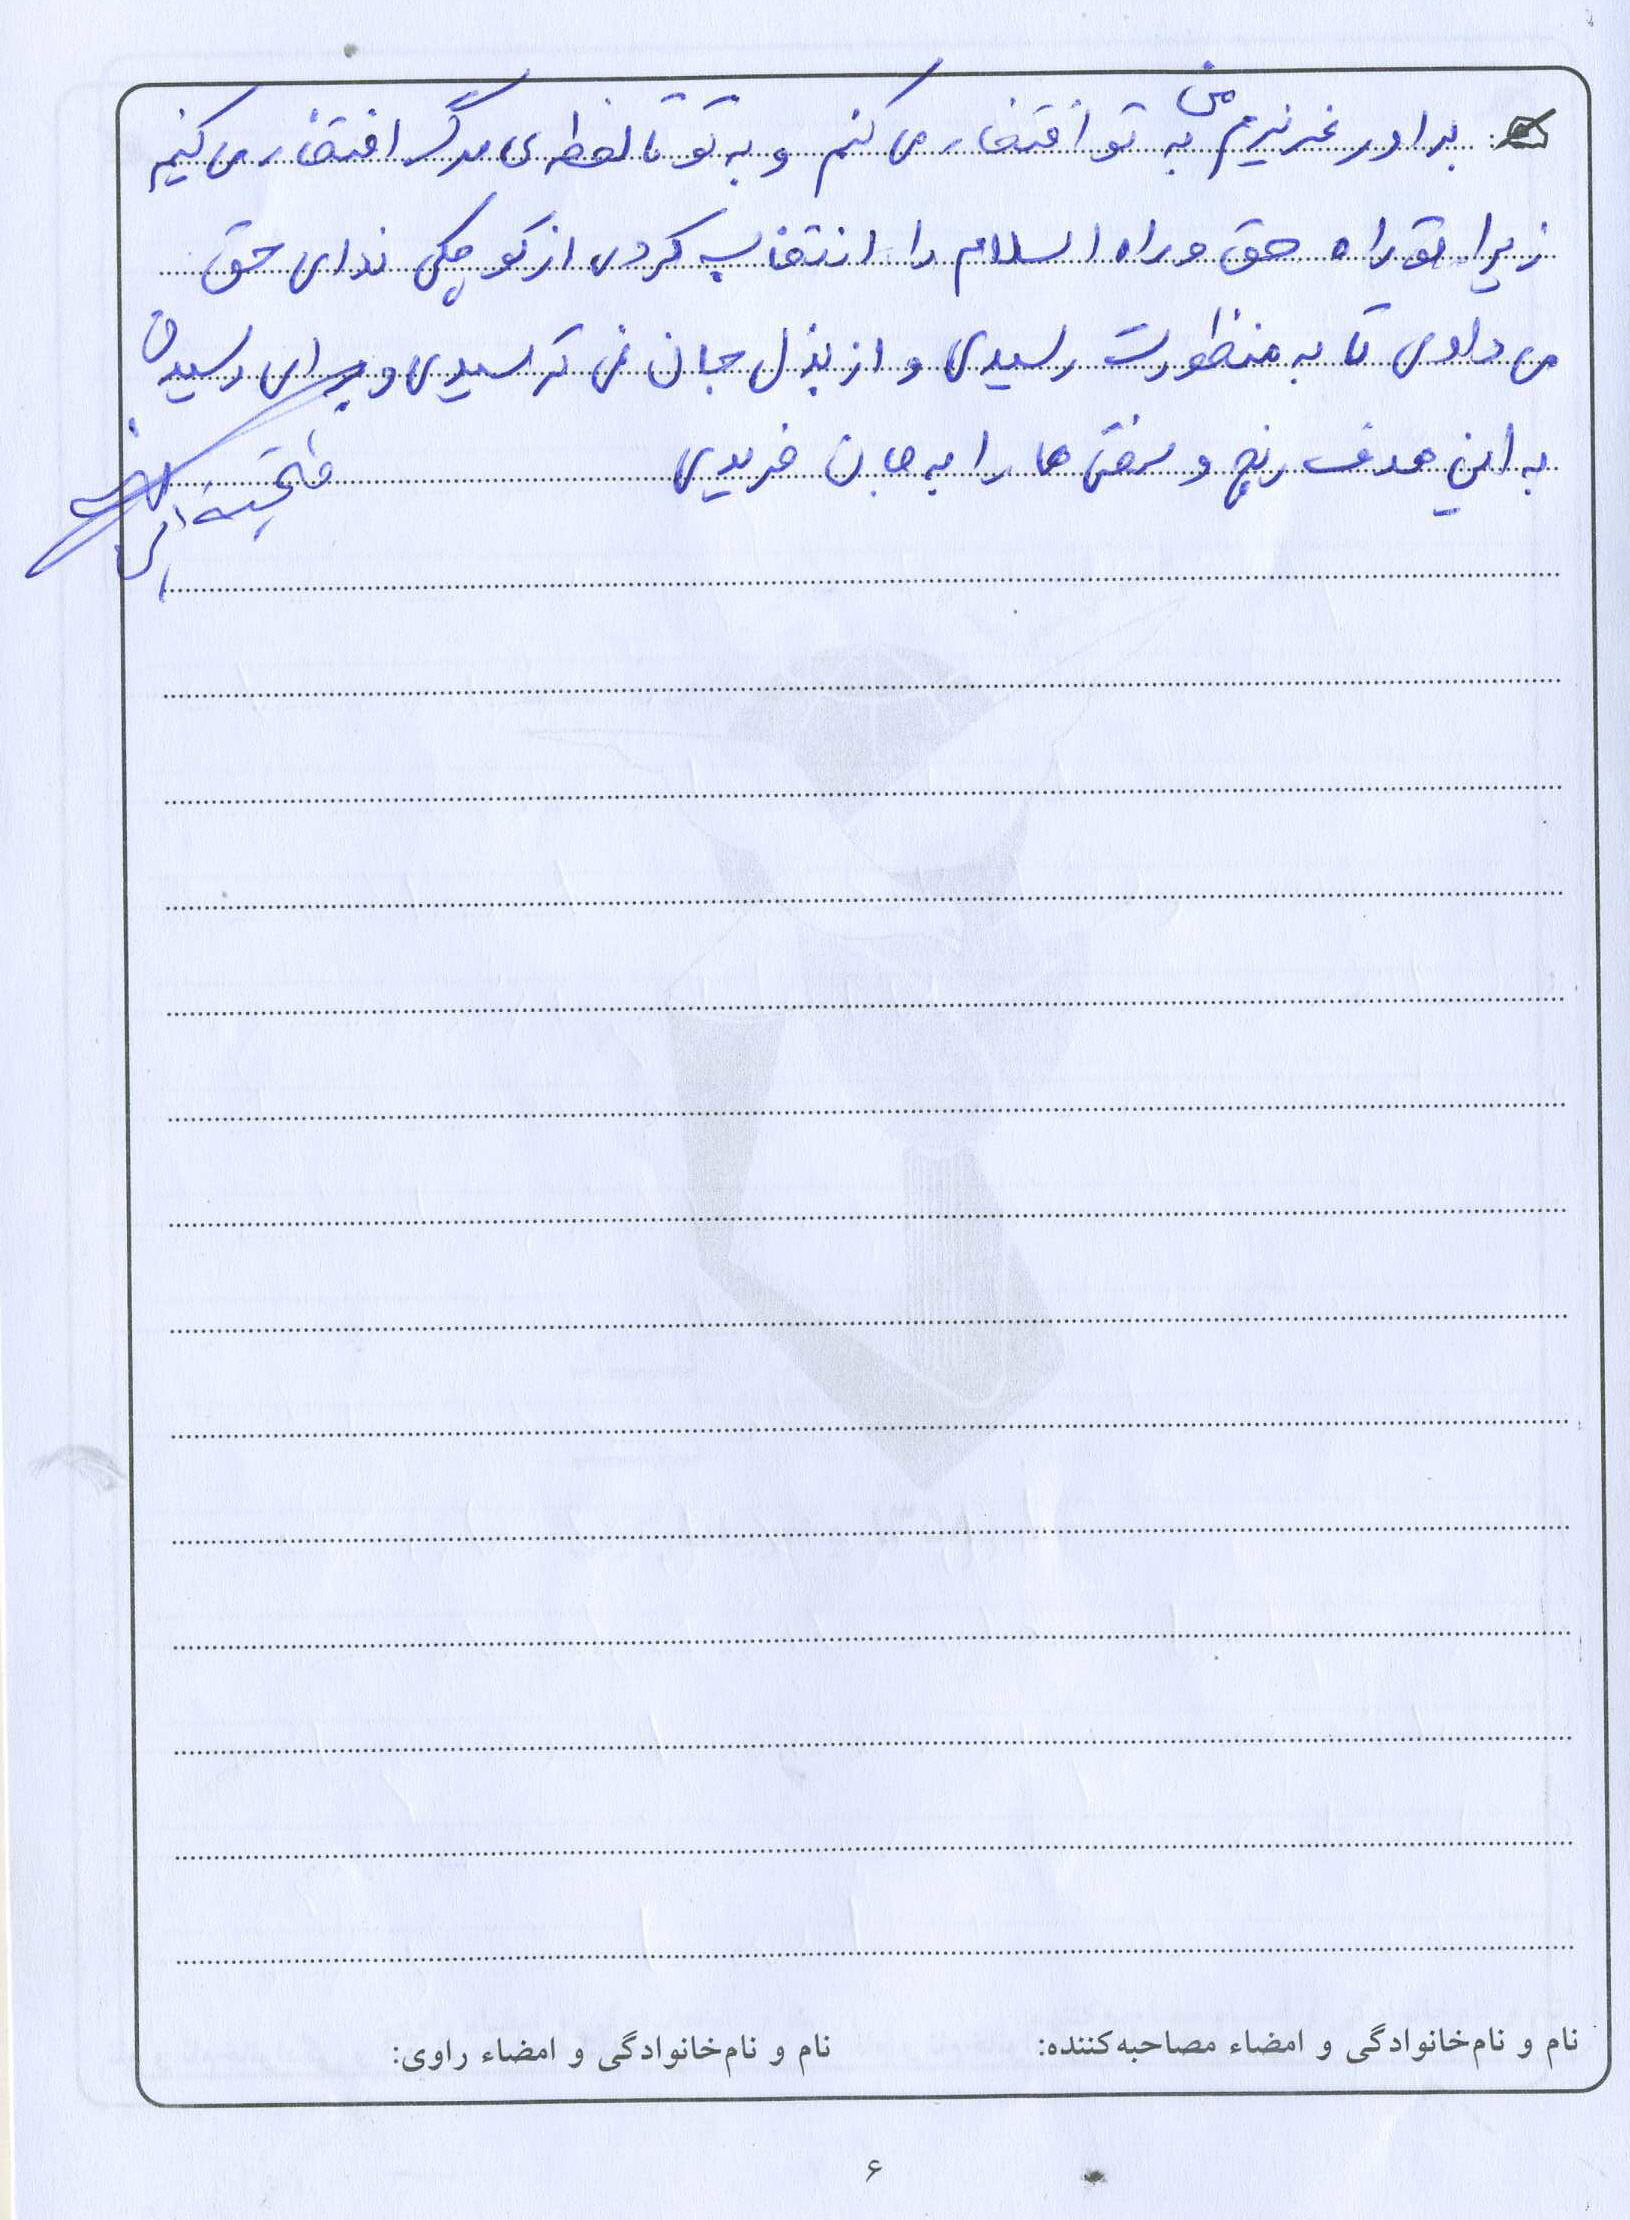 برادر عزیزم من به تو افتخار می کنم و به تو تا لحظه ی مرگ افتخار می کنیم
زیرا تو راه حق و راه اسلام را انتخاب کردی از کوچکی ندای حق
می دادی تا به منظورت رسیدی و از بذل جان نمی ترسیدی و برای رسیدن
به این هدف رنج و سختی ها را به جان خریدی
نام و نام‌خانوادگی و امضاء مصاحبه‌کننده:
نام و نام‌خانوادگی و امضاء راوی:
۶